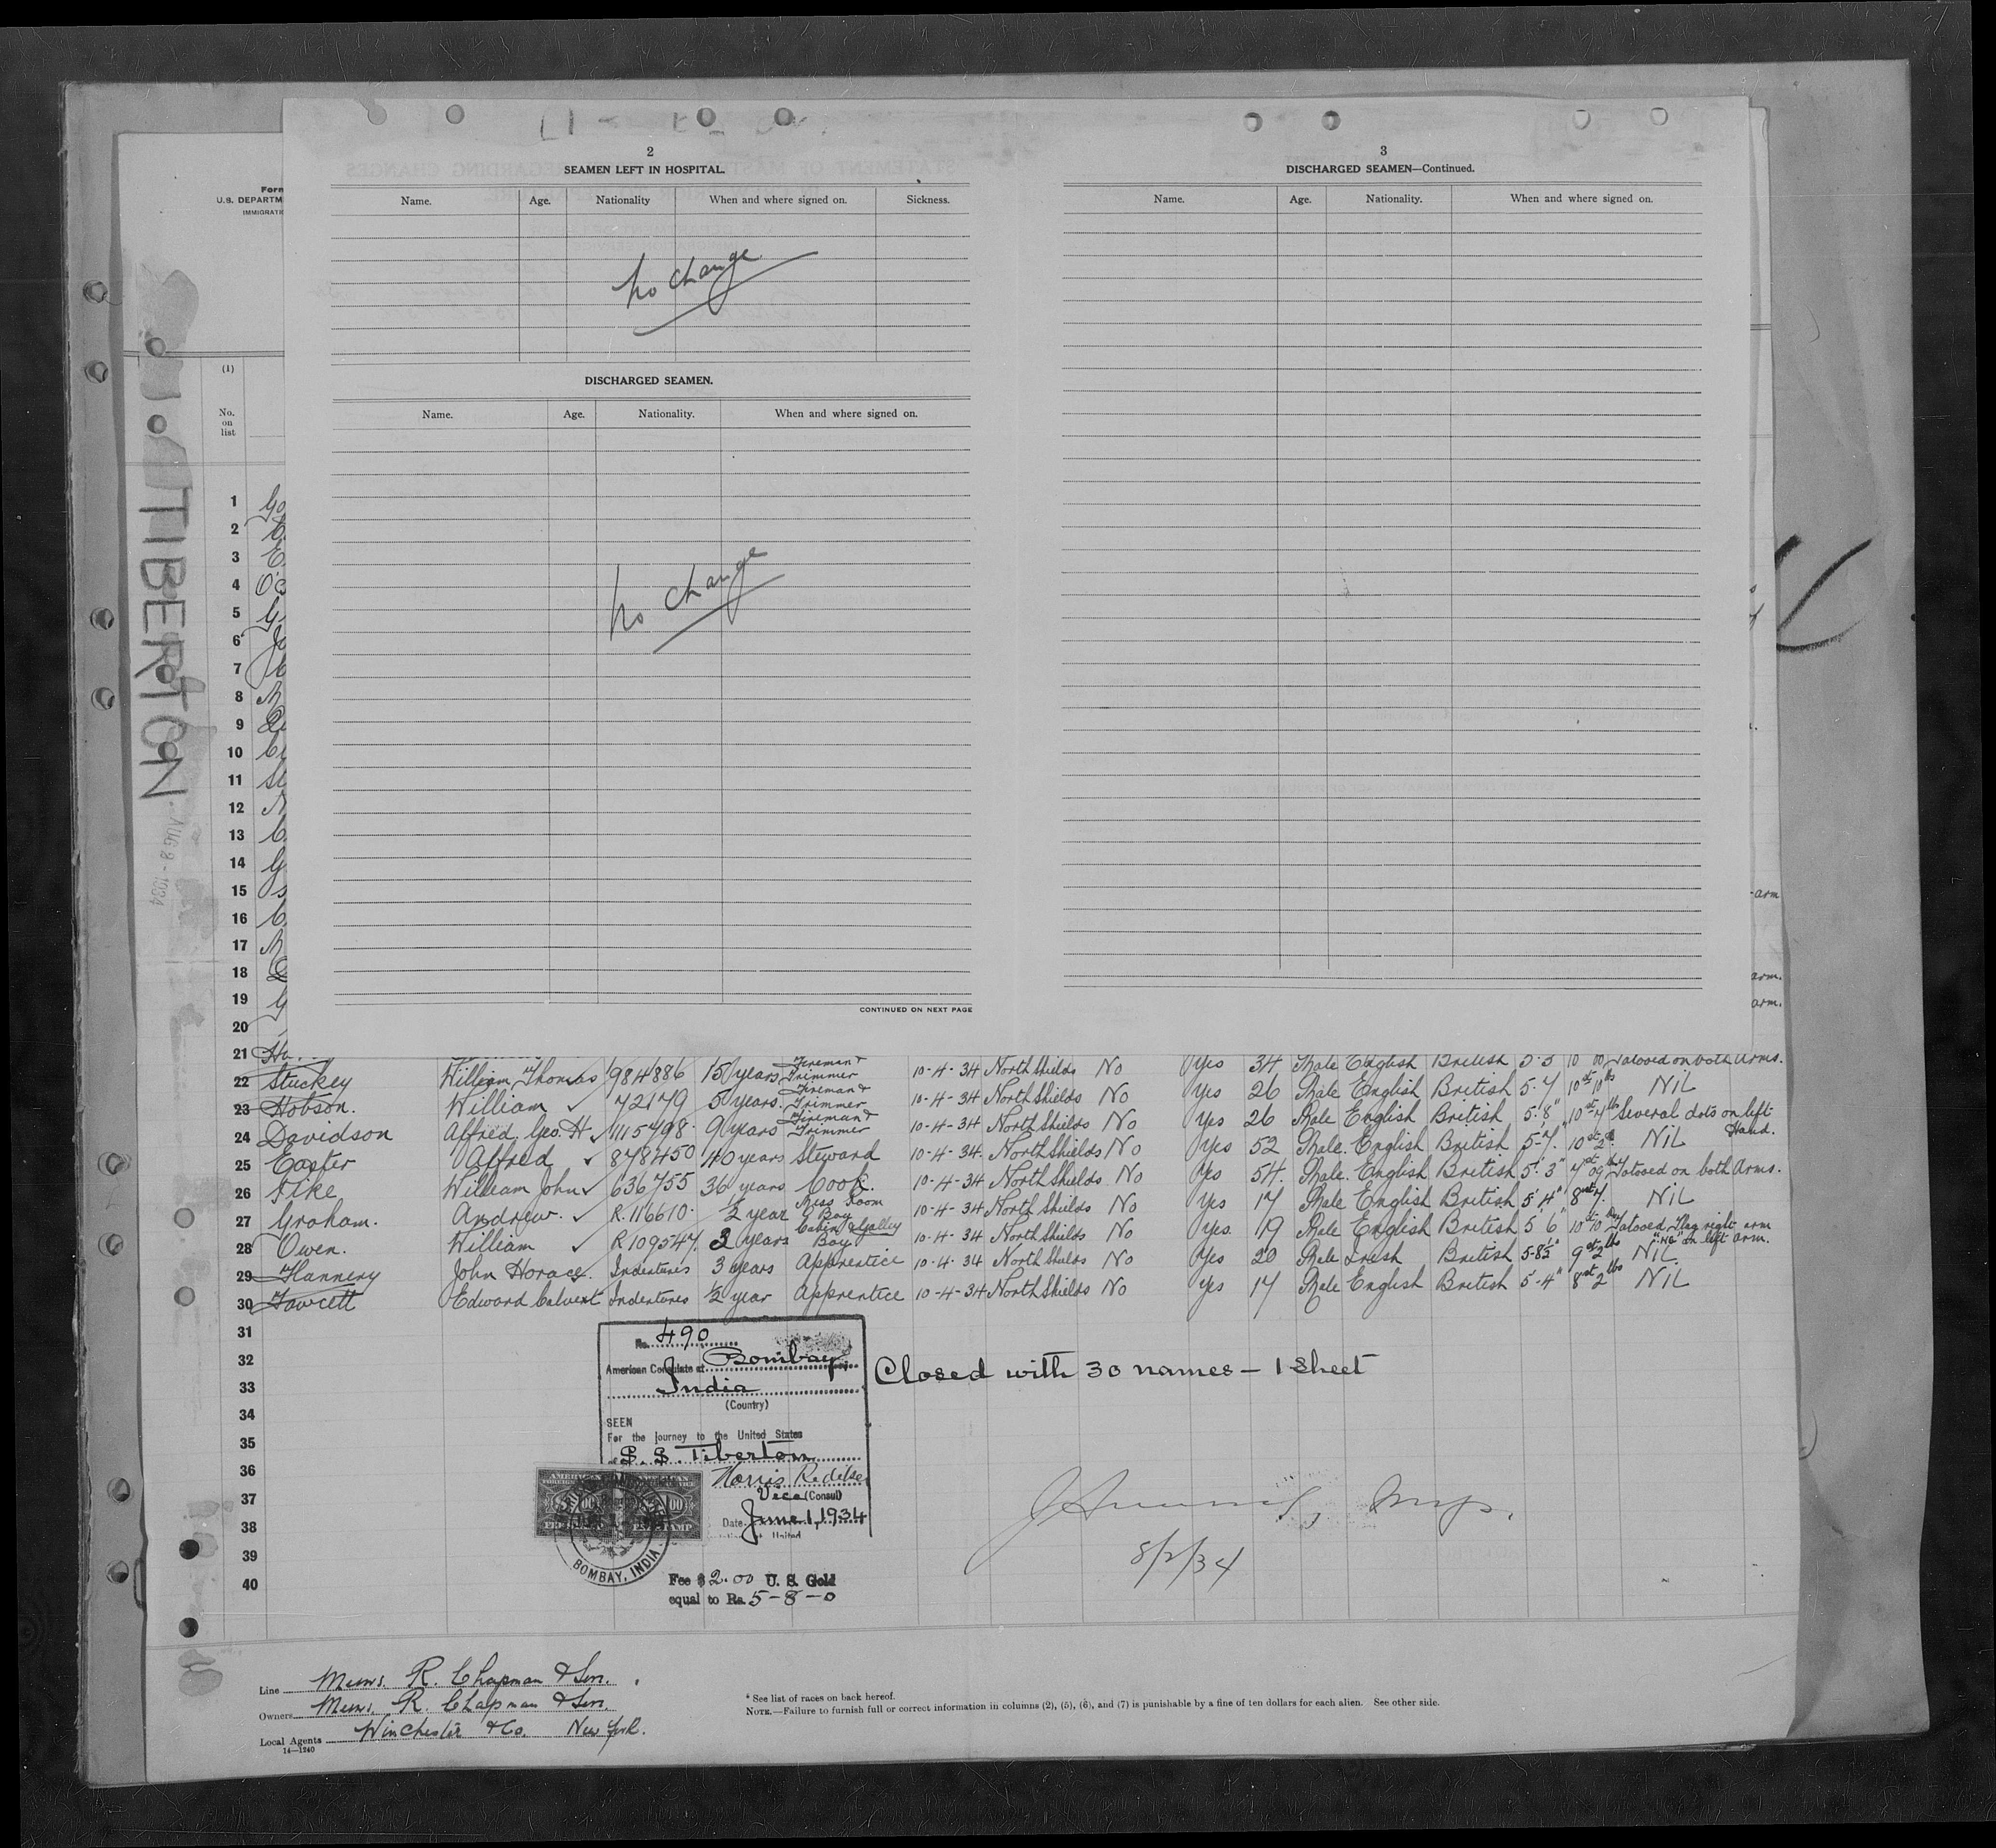 2
SEAMEN LEFT IN HOSPITAL.
Name. Age. Nationality When and where signed on. Sickness.
No change
DISCHARGED SEAMEN.
Name. Age. Nationality. When and where signed on.
No change
CONTINUED ON NEXT PAGE
3
DISCHARGED SEAMEN—Continued.
Name. Age. Nationality. When and where signed on.
Form
U.S. DEPARTM
IMMIGRATI
(1)
No.
on
list
TIBERTON
AUG 2 - 1934
1 Go
2
3 E
4 O'C
5 G
6 Jo
7
8
9
10
11 St
12
13
14 G
15
16
17
18
19 G
20
21
arm
arm.
arm.
22 Stuckey William Thomas 984886 15 years Fireman & Trimmer 10-4-34 North Shields No Yes 34 Male English British 5-5 Tatooed on both arms.
23 Hobson. William 72179 5 years. Fireman & Trimmer 10-4-34 North Shields No Yes 26 Male English British 5-7 10st 10lbs NiL
24 Davidson Alfred Geo. H. 1115798 9 years Fireman & Trimmer 10-4-34 North Shields No Yes 26 Male English British 5'8" 10st 4lb Several dots on left Hand.
25 Easter Alfred 878450 40 years Steward 10-4-34 North Shields No Yes 52 Male. English British 5-7. 10st 2lb NiL
26 Fike William John 636755 36 years Cook. 10-4-34 North Shields. No Yes 54. Male. English British 5' 3" Tatooed on both Arms.
27 Graham. Andrew. R.116610 ½ year Mess Room Boy 10-4-34 North Shields No Yes 17 Male English British 5'4" 8st 7. NiL
28 Owen. William R109547 3 years Cabin & Galley Boy 10-4-34 North Shields No Yes. 19 Male English British 5'6" 10st 10lbs Tatooed Flag right arm on left arm.
29 Flannery John Horace. Indentures 3 years Apprentice 10-4-34 North Shields No Yes 20 Male Irish British 5-8½" 9st 2lbs NiL
30 Fawcett Edward Calvert Indentures ½ year Apprentice 10-4-34 North Shields No Yes 17 Male English British 5-4" 8st 2lbs NiL
31
32
33
34
35
36
37
38
39
40
No. 490
American Consulate at Bombay,
India
(Country)
SEEN
For the journey to the United States
of S.S. Tiberton
Vice (Consul)
Date June 1, 1934
United
BOMBAY, INDIA
Fee $ 2.00 U. S. Gold
equal to Rs. 5-8-0
Closed with 30 names — 1 Sheet
8/2/34
Line Messrs. R. Chapman & Son.
Owners Messrs. R. Chapman & Son
Local Agents Winchester & Co. New York.
14—1240
* See list of races on back hereof.
NOTE.—Failure to furnish full or correct information in columns (2), (5), (6), and (7) is punishable by a fine of ten dollars for each alien. See other side.